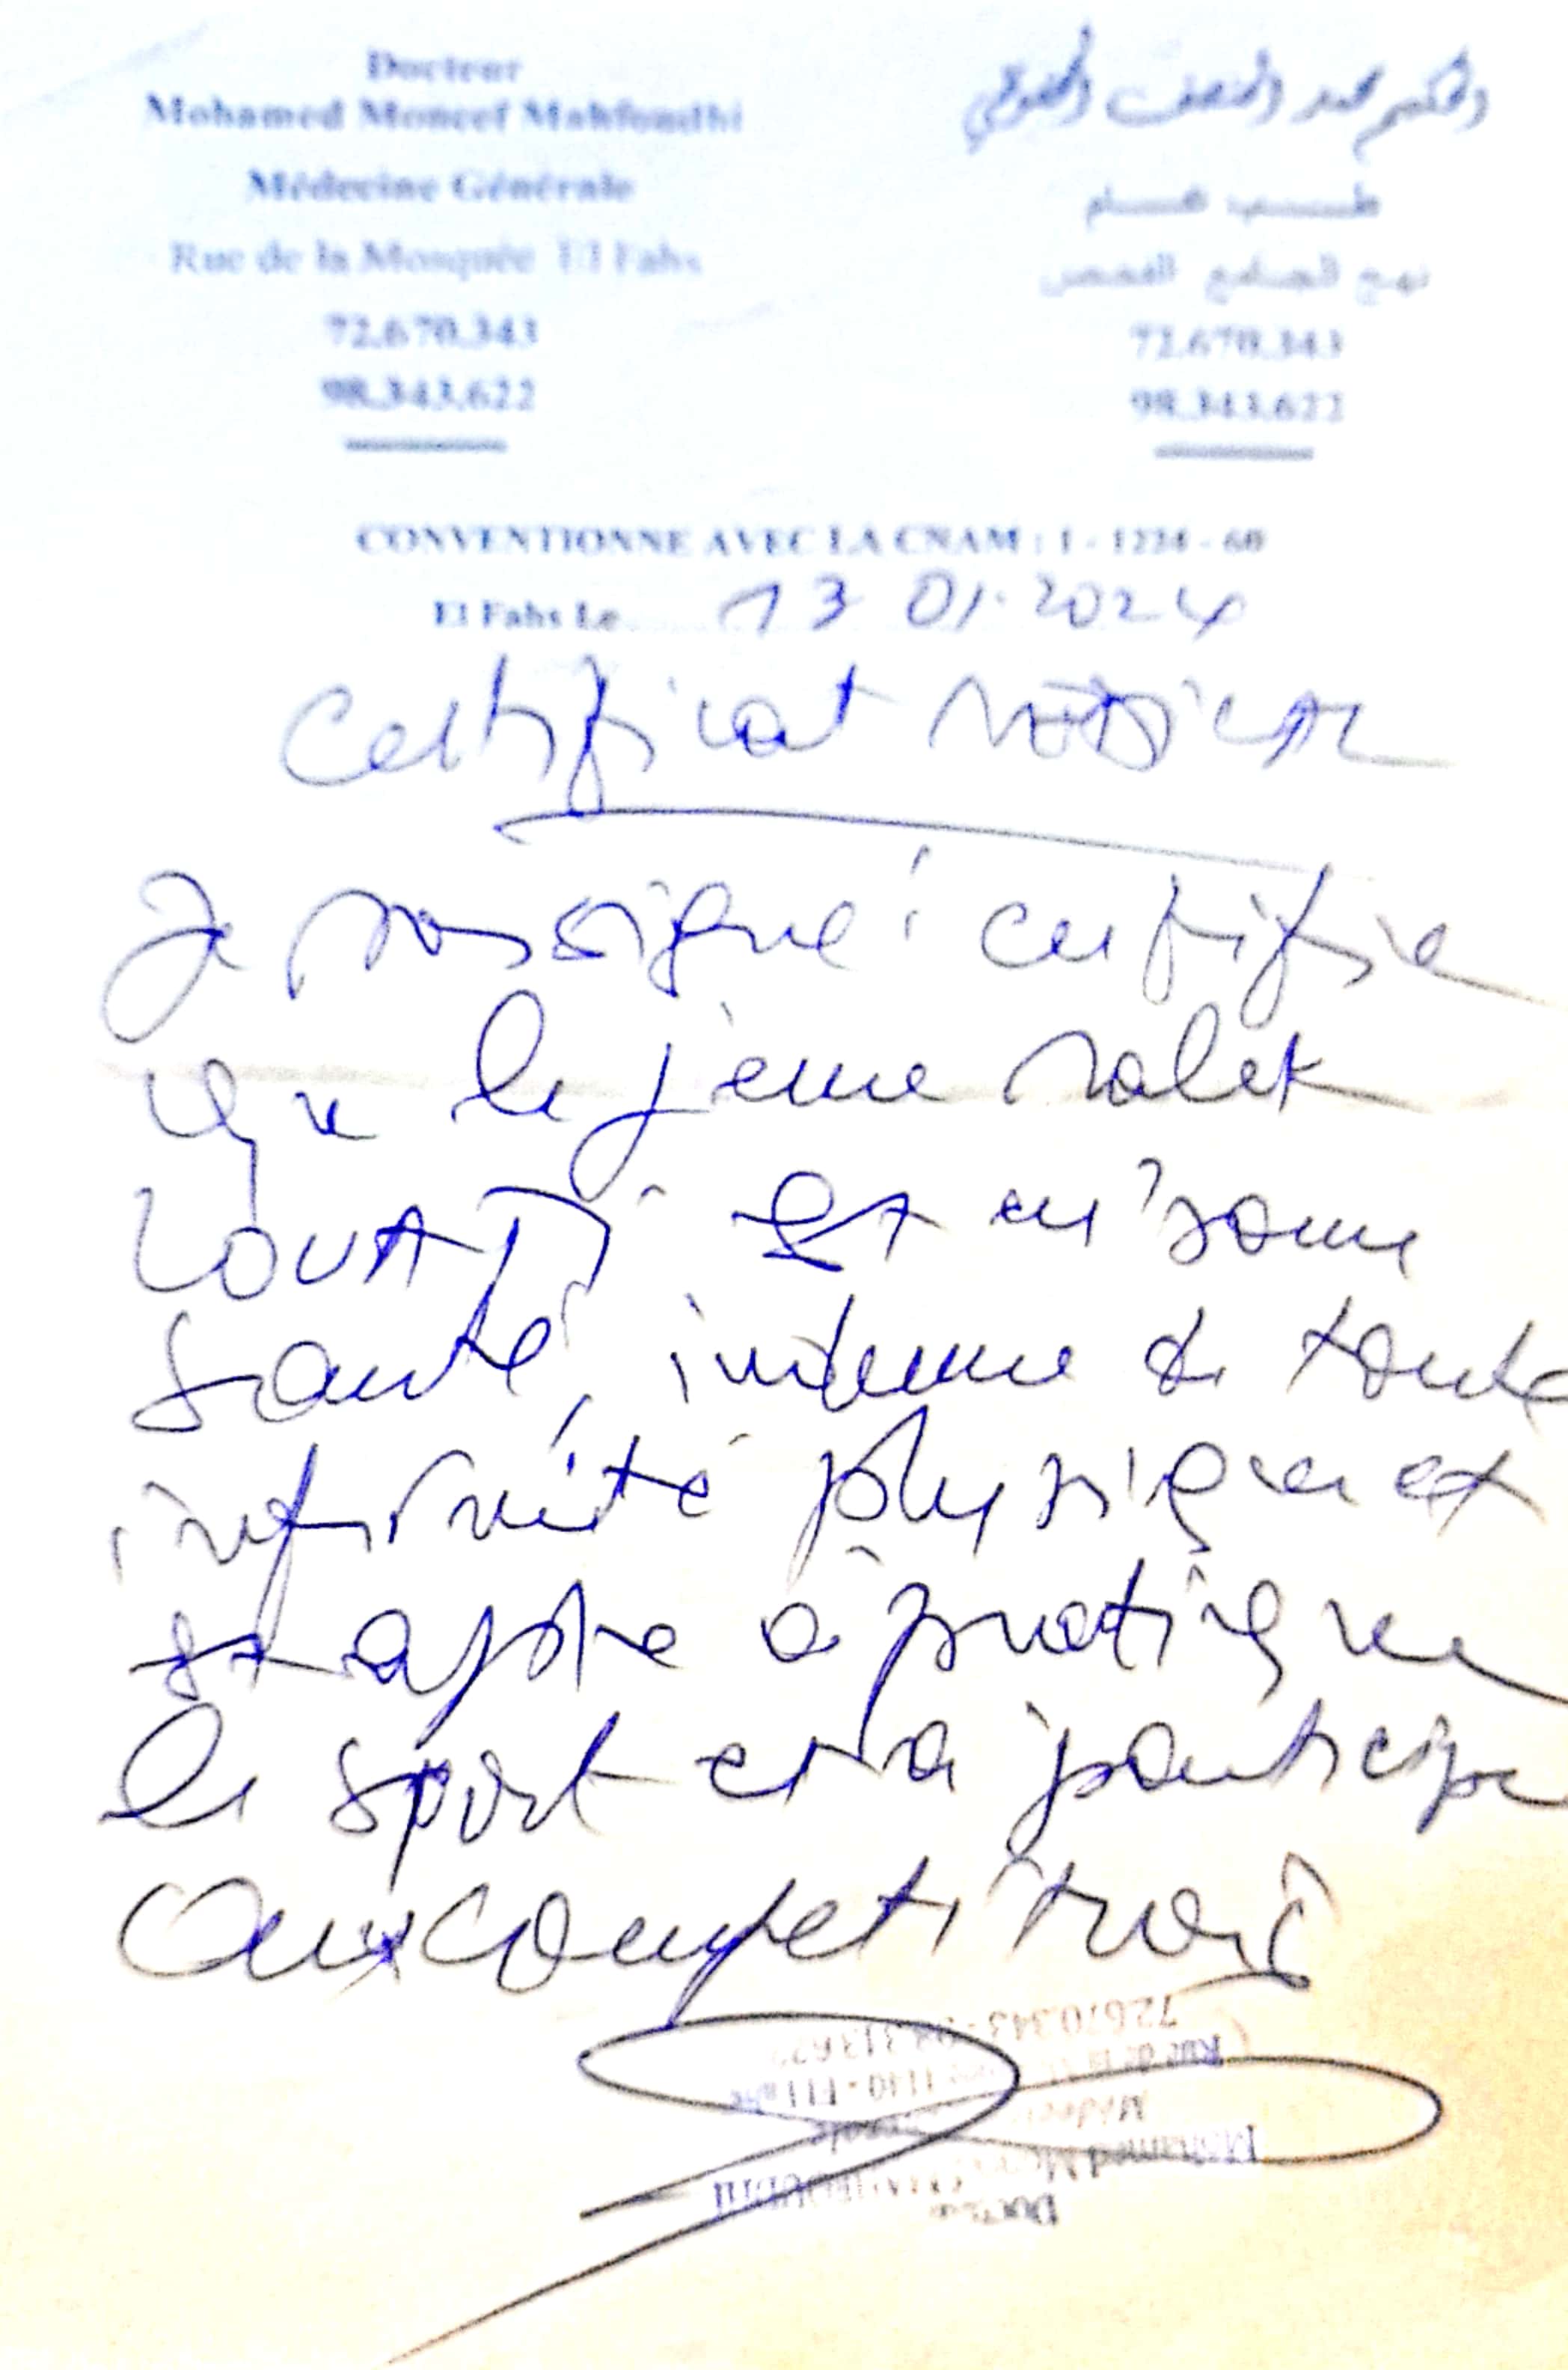 Docteur
Mohamed Moncef Mahfoudhi
Médecine Générale
Rue de la Mosquée El Fahs
72.670.343
98.343.622
الحكيم محمد المنصف المحفوظي
طبيب عام
نهج الجامع الفحص
72.670.343
98.343.622
CONVENTIONNE AVEC LA CNAM : 1 - 1234 - 60
El Fahs Le 13 01.2024
Certificat Médical
Je soussigné certifie
que le jeune Malek
LOUATI est en bonne
santé, indemne de toute
infirmité physique et
est apte à pratiquer
le sport et à participer
aux competitions
72670.343
Rue de la
1140 - El Fahs
Mohamed
MAHFOUDHI
Docteur